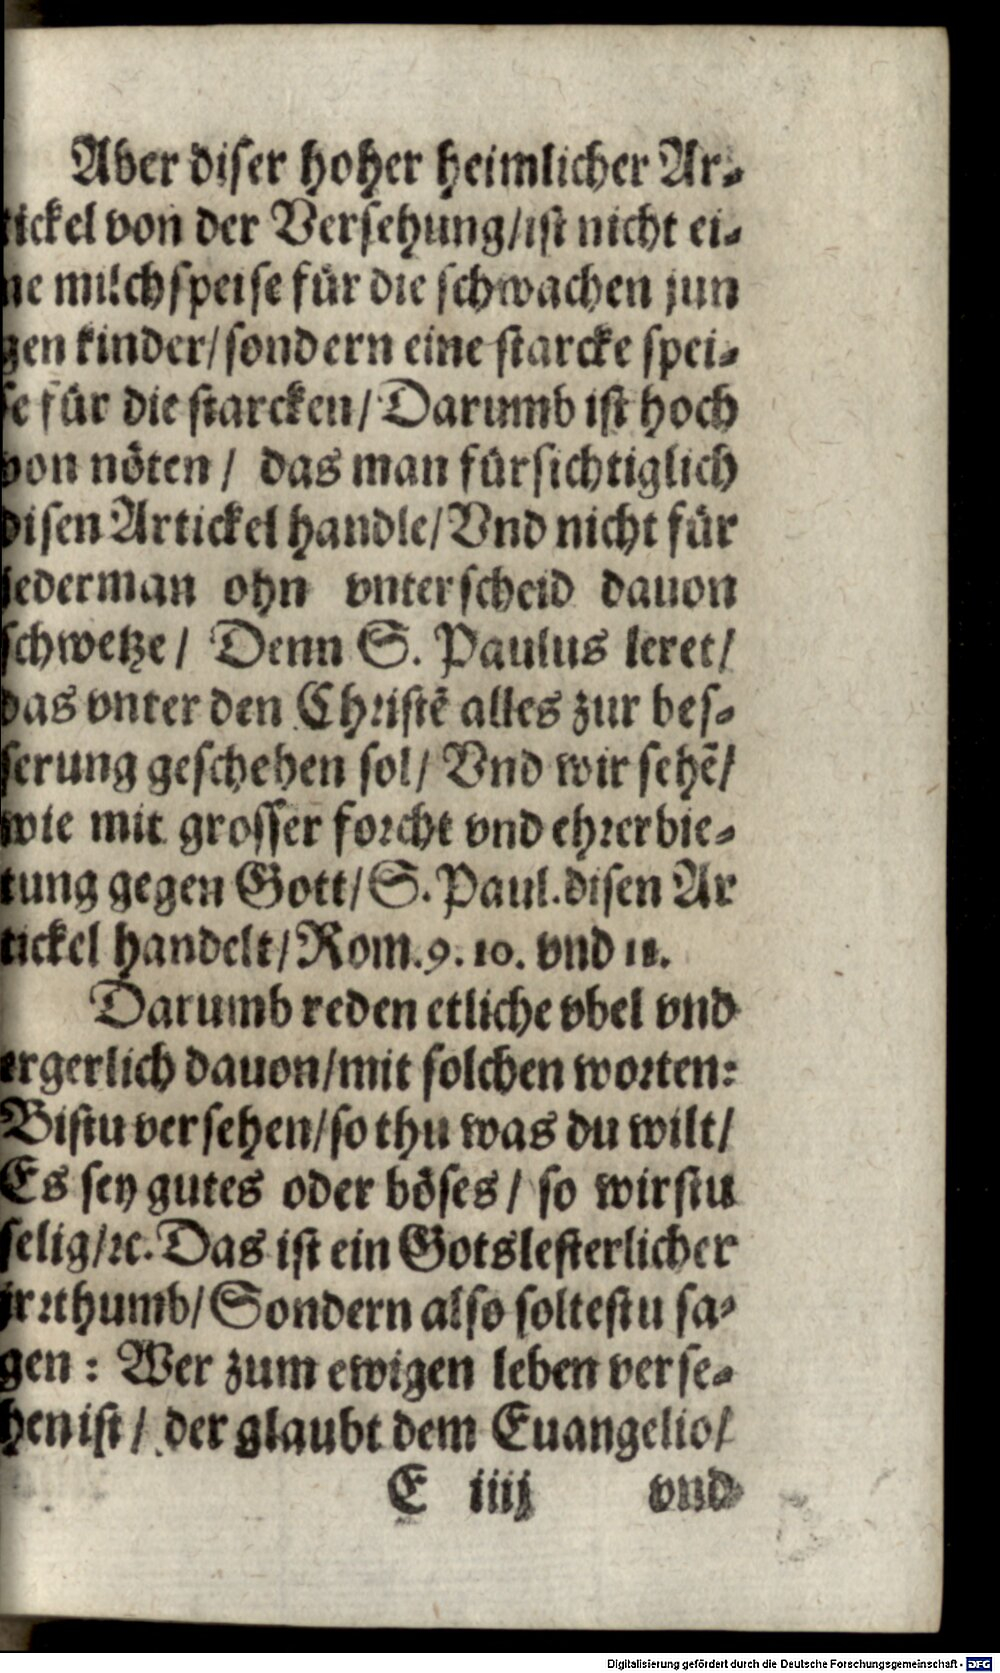 Aber diser hoher heimlicher Ar⸗
tickel von der Versehung/ist nicht ei⸗
ne milchspeise für die schwachen jun
gen kinder/sondern eine starcke spei⸗
se für die starcken/Darumb ist hoch
von nöten/ das man fürsichtiglich
disen Artickel handle/Vnd nicht für
jederman ohn vnterscheid dauon
schwetze/ Denn S. Paulus leret/
das vnter den Christē alles zur bes⸗
serung geschehen sol/ Vnd wir sehē/
wie mit grosser forcht vnd ehrerbie⸗
tung gegen Gott/S. Paul.disen Ar
tickel handelt/Rom.9. 10. vnd 11.
Darumb reden etliche vbel vnd
ergerlich dauon/mit solchen worten:
Bistu versehen/so thu was du wilt/
Es sey gutes oder böses/ so wirstu
selig/ꝛc. Das ist ein Gotslesterlicher
jrrthumb/Sondern also soltestu sa⸗
gen: Wer zum ewigen leben verse⸗
hen ist/ der glaubt dem Euangelio/
E iiij vnd
Digitalisierung gefördert durch die Deutsche Forschungsgemeinschaft - DFG